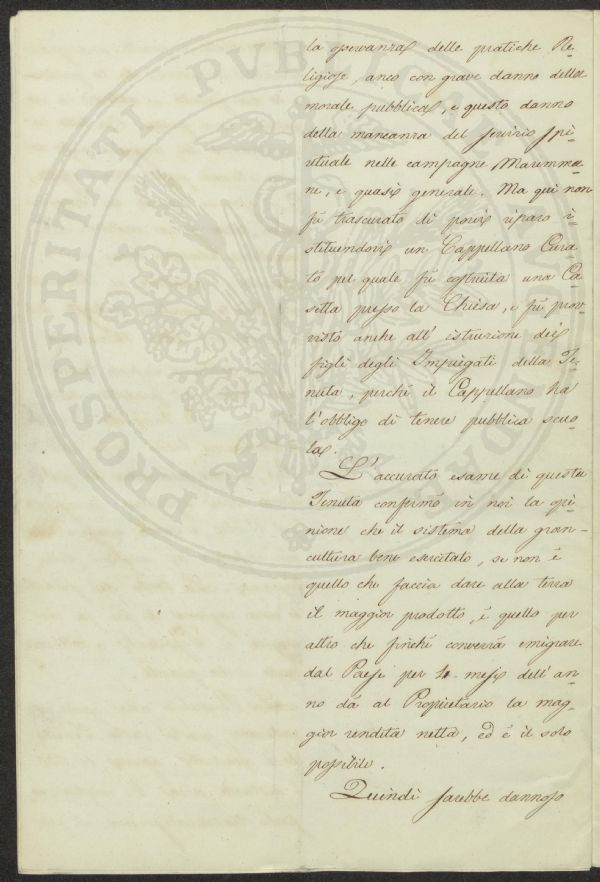 la osservanza delle pratiche Re-
ligiose, anco con grave danno della
morale pubblica, e questo danno
della mancanza del servizio spi-
rituale nelle campagne Maremma-
ne, è quasi generale. Ma quì non
fù trascurato di porvi riparo i-
stituendovi un Cappellano Cura-
to pel quale fù costruita una Ca-
setta presso la Chiesa, e fù prov-
visto anche all' istruzione dei
figli degli Impiegati della Te-
nuta, perchè il Cappellano ha
l'obbligo di tenere pubblica scuo-
la.
L'accurato esame di questa
Tenuta confermò in noi la opi-
nione che il sistema della gran-
cultura bene esercitato, se non è
quello che faccia dare alla terra
il maggior prodotto, è quello per
altro che finchè converrà emigrare
dal Paese per 4 mesi dell' an-
no dà al Proprietario la mag-
gior rendita netta, ed è il solo
possibile.
Quindi sarebbe dannoso
PROSPERITATI PVBLICAE AVGENDAE